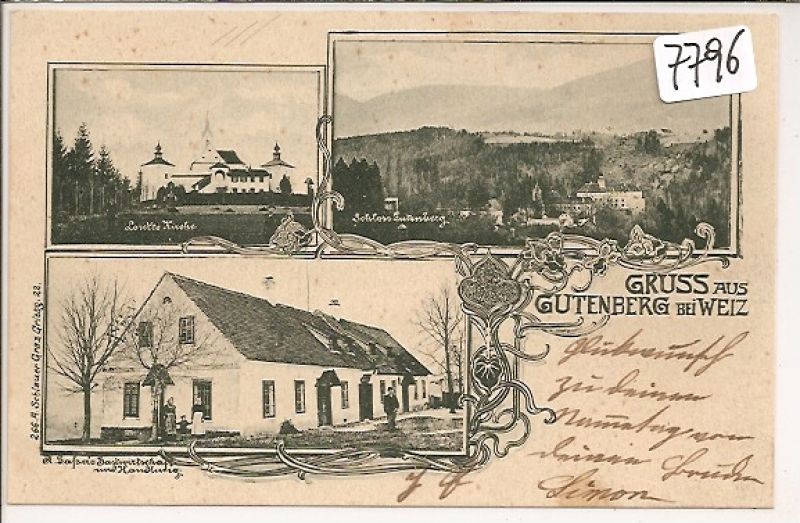 7796
Loretto Kirche
Schloss Gutenberg
GRUSS AUS
GUTENBERG BEI WEIZ
266 A. Schlauer Graz Griesg. 22.
Gastwirtschaft
und Handlung
Glükwunsch
zu deinen
Namenstag von
deinen Bruder
Simon